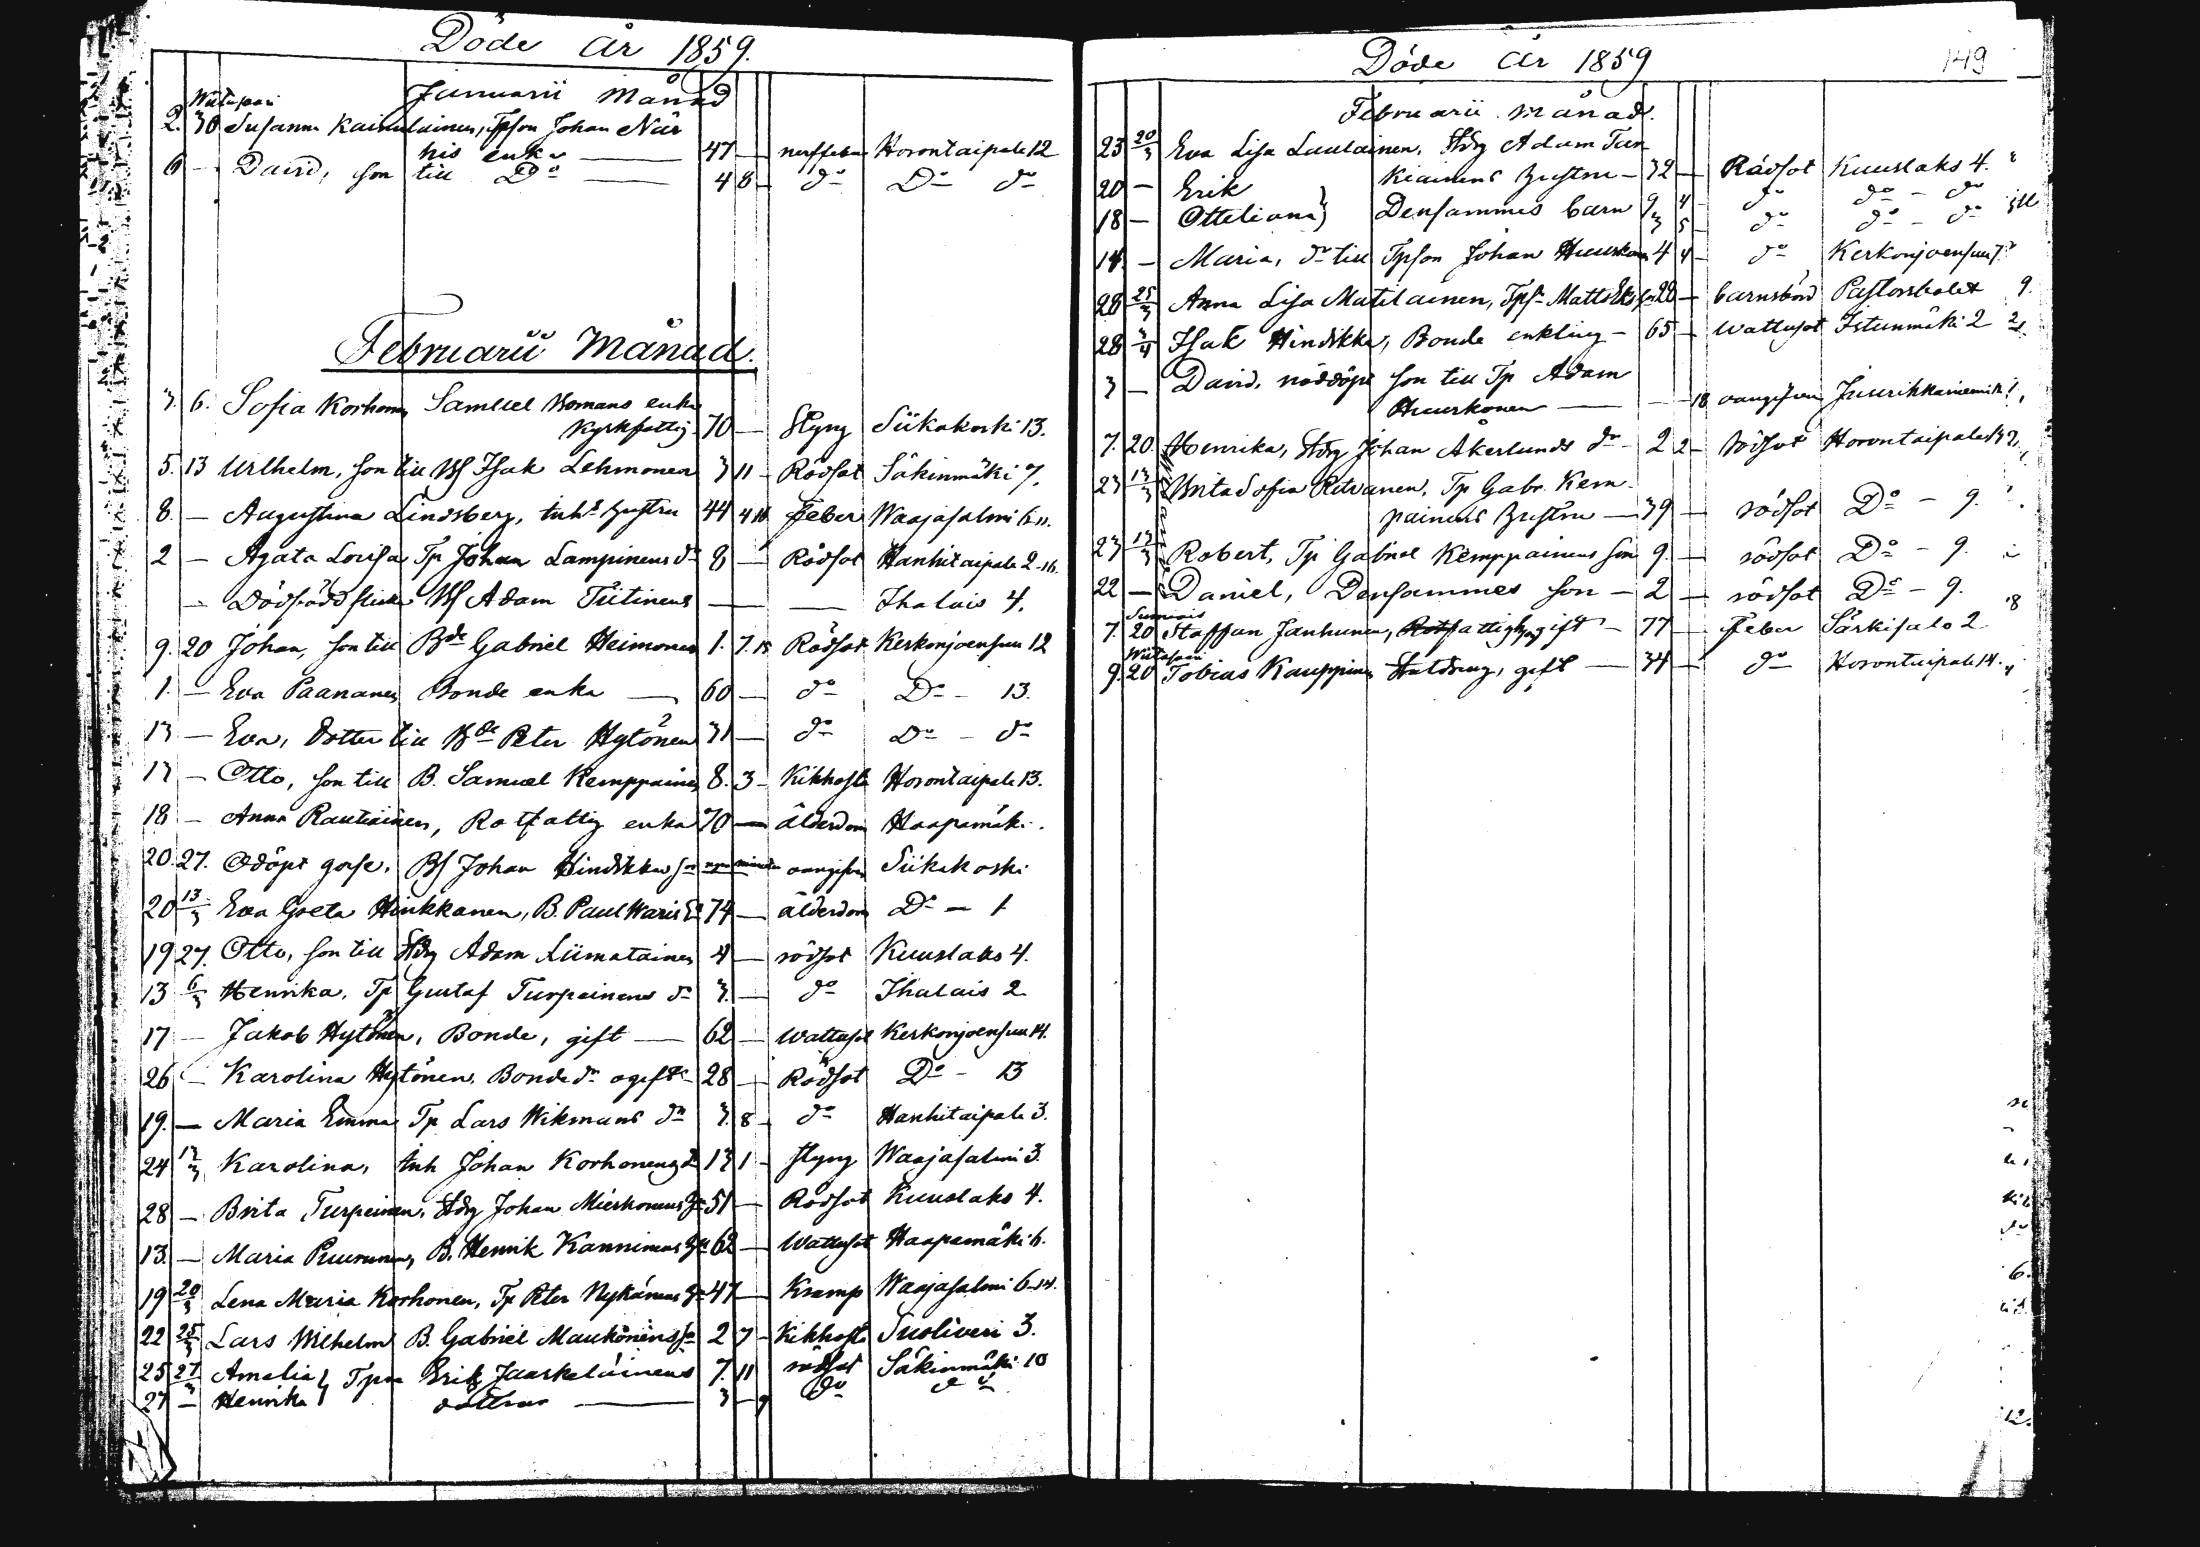 Döde år 1859.
Januarii Månad
Wiitasaari
2. 30 Susanna Kainulainen, Tpson Johan När
his enka — 47 — nerffeber Horontaipale 12
6 — David, son till Do — 4 8 — do Do do
Februarii Månad.
3. 6. Sofia Korhonen Samuel Homans enka
Kyrkfattig 70 — Styng Siikakoski 13.
5. 13 Wilhelm, son till Bf Isak Lehmonen 3 11 — Rödsot Säkinmäki 7.
8. — Augustina Lindsberg, Inhs hustru 44 4 18 Feber Waajasalmi 6 11.
2 — Agata Lovisa Tp Johan Lampinens dr 8 — Rödsot Hanhitaipale 2-16.
— Dödfödd flicka Bf Adam Tiitinens — — Ihalais 4.
9. 20 Johan, son till Bde Gabriel Heimonen 1. 7. 15 Rödsot Kerkonjoensuu 12
1. — Eva Paananen Bonde enka — 60 — do Do — 13.
13 — Eva, dotter till Bde Peter Hytönen 31 — do Do — do
17 — Otto, son till B. Samuel Kemppainen 8. 3 — Kikhosta Horontaipale 13.
18 — Anna Rautiainen, Rotfattig enka 70 — ålderdom Haapamäki.
20. 27. Odöpt gosse. Bf Johan Hindikkas son oangifven Siikakoski
20 13/3 Eva Greta Hinkkanen, B. Paul Waris Ea 74 — ålderdom Do — 1
19 27. Otto, son till Stdrg Adam Liimatainen 4 — rödsot Kuuslaks 4.
13 6/3 Henrika, Tp Gustaf Turpeinens dr 3. — do Ihalais 2
17 — Jakob Hytönen, Bonde, gift — 62 — Wattusot Kerkonjoensuu 14.
26 — Karolina Hytönen, Bonde dr ogift 28 — Rödsot Do — 13
19. — Maria Emma Tp Lars Wikmans dr 3. 8 — do Hanhitaipale 3.
24 13/3 Karolina, Inh Johan Korhonens dr 13 1 — styng Waajasalmi 3.
28 — Brita Turpeinen, Stdrg Johan Mierkonens hu 51 — Rödsot Kuuslaks 4.
13. — Maria Puurunen, B. Henrik Kanninens hu 62 — Wattusot Haapamäki 6.
19 20/3 Lena Maria Korhonen, Tp Peter Nykänens hu 47 — Kramp Waajasalmi 6-14.
22 25/3 Lars Wilhelm B. Gabriel Maukonens son 2 7 — Kikhosta Suoliveri 3.
25 27/3 Amalia } Tpn Erik Jaaskeläinens 7. 11 rödsot Säkinmäki 10
27 — Henrika } döttrar — 3 — 9 do do
Döde År 1859
149
Februarii månad.
23 20/3 Eva Lisa Laulainen, Stdrg Adam Tur
kiainens hustru — 32 — Rådsot Kuuslaks 4.
20 — Erik } Densammes barn 9 4 — do do — do
18 — Otteliana } 3 5 — do do — do
14. — Maria, dr till Tpson Johan Huuskonen 4 4 — do Kerkonjoensuu 7.
28 25/3 Anna Lisa Matilainen, Tps Matts 28 — barnsbörd Pastorsbolet 9.
28 3/4 Isak Hindikka, Bonde enkling — 65 — Wattusot Istunmäki 2
3 — David, nöddöpt son till Tp Adam
Huuskonen — — 18 oangifven Juurikkaniemi 1.
7. 20. Henrika, Stdrg Johan Åkerlunds dr — 2 2 — rödsot Horontaipale
23 13/3 Brita Sofia Ritvanen, Tp Gabr. Kem
painens hustru — 39 — rödsot Do — 9.
23 13/3 Robert, Tp Gabriel Kemppainens son 9. — rödsot Do — 9.
22 — Daniel, Densammes son — 2 — rödsot Do — 9.
Sumiais
7. 20 Staffan Janhunen, gift — 77 — Feber Särkisalo 2
Wiitasaari
9. 20 Tobias Kauppinen Stutdreng, gift — 34 — do Horontaipale 14.